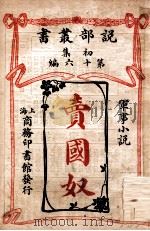 說部叢書
初集
第十六編
軍事小說
賣國奴
上海
商務印書館發行